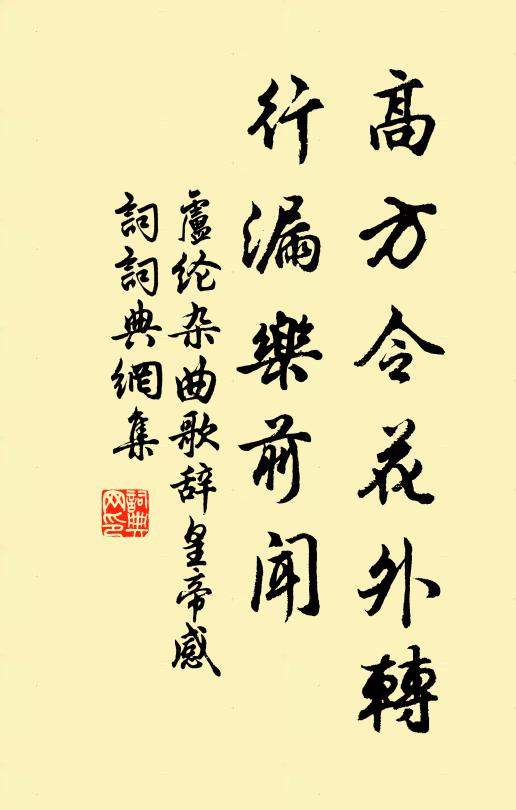 高方令花外轉
行漏樂前聞
盧纶杂曲歌辞皇帝感
詞詞典網集
詞典
网印